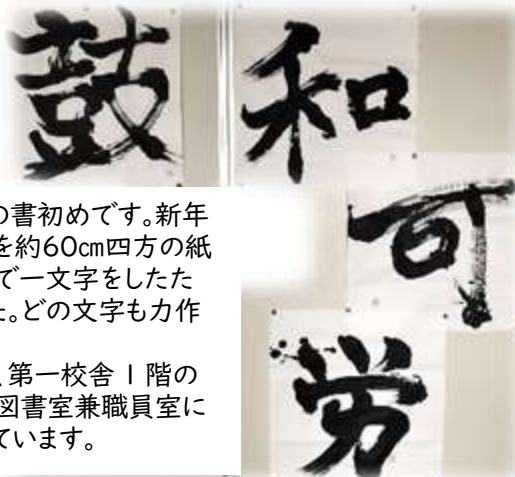 鼓
和
可
労
の書初めです。新年
を約60㎝四方の紙
で一文字をしたた
た。どの文字も力作
、第一校舎1階の
図書室兼職員室に
ています。